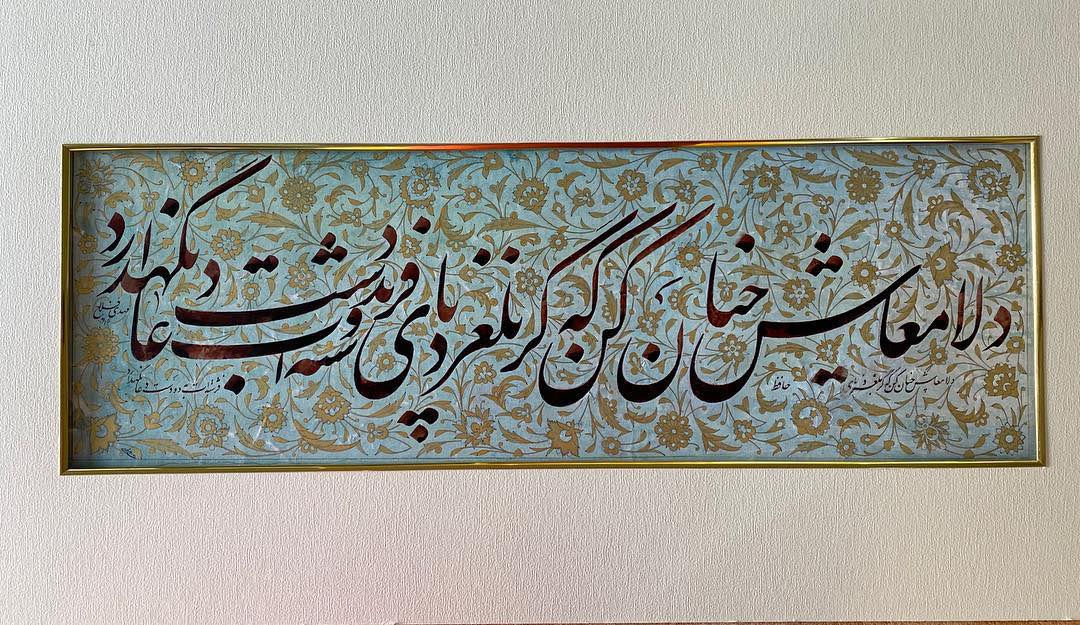 دلا معاش چنان کن که گر بلغزد پای
فرشته ات به دو دست دعا نگهدارد
دلا معاش چنان کن که گر بلغزد پای
حافظ
فرشته ات به دو دست دعا نگهدارد